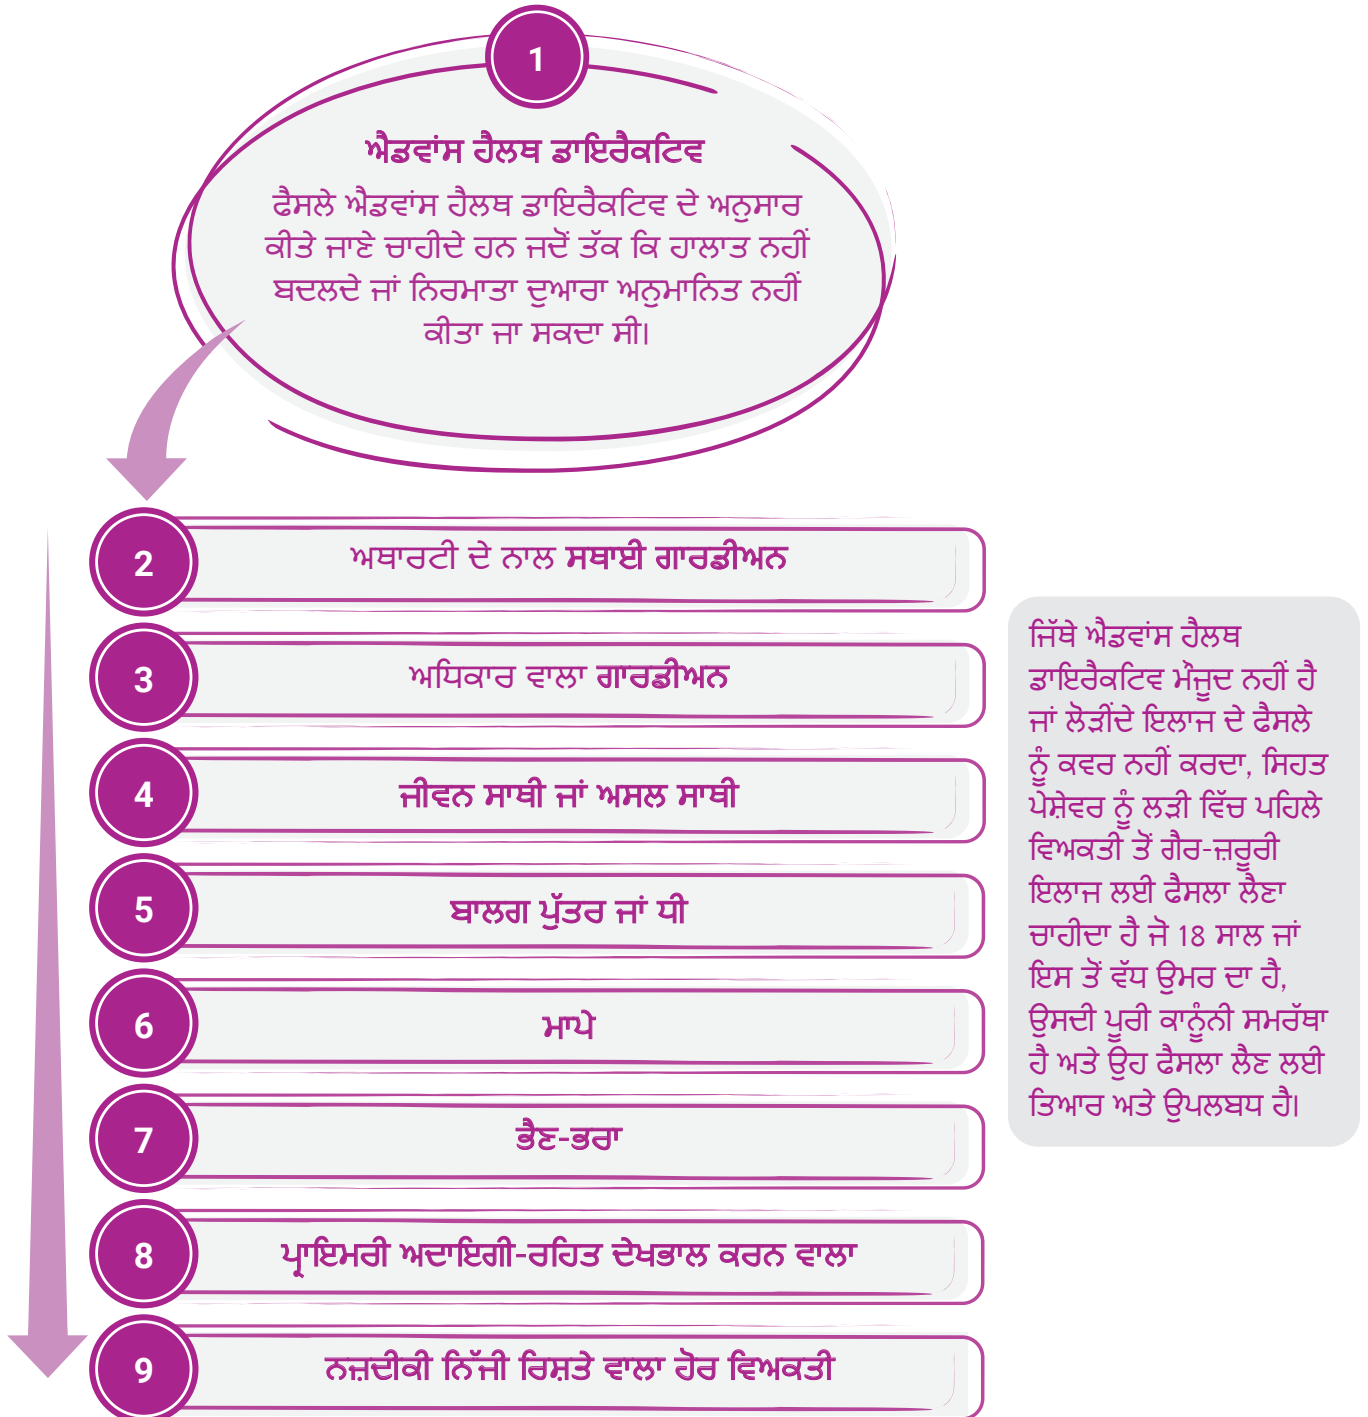 1
ਐਡਵਾਂਸ ਹੈਲਥ ਡਾਇਰੈਕਟਿਵ
ਫੈਸਲੇ ਐਡਵਾਂਸ ਹੈਲਥ ਡਾਇਰੈਕਟਿਵ ਦੇ ਅਨੁਸਾਰ
ਕੀਤੇ ਜਾਣੇ ਚਾਹੀਦੇ ਹਨ ਜਦੋਂ ਤੱਕ ਕਿ ਹਾਲਾਤ ਨਹੀਂ
ਬਦਲਦੇ ਜਾਂ ਨਿਰਮਾਤਾ ਦੁਆਰਾ ਅਨੁਮਾਨਿਤ ਨਹੀਂ
ਕੀਤਾ ਜਾ ਸਕਦਾ ਸੀ।
2
ਅਥਾਰਟੀ ਦੇ ਨਾਲ ਸਥਾਈ ਗਾਰਡੀਅਨ
3
ਅਧਿਕਾਰ ਵਾਲਾ ਗਾਰਡੀਅਨ
4
ਜੀਵਨ ਸਾਥੀ ਜਾਂ ਅਸਲ ਸਾਥੀ
5
ਬਾਲਗ ਪੁੱਤਰ ਜਾਂ ਧੀ
6
ਮਾਪੇ
7
ਭੈਣ-ਭਰਾ
8
ਪ੍ਰਾਇਮਰੀ ਅਦਾਇਗੀ-ਰਹਿਤ ਦੇਖਭਾਲ ਕਰਨ ਵਾਲਾ
9
ਨਜ਼ਦੀਕੀ ਨਿੱਜੀ ਰਿਸ਼ਤੇ ਵਾਲਾ ਹੋਰ ਵਿਅਕਤੀ
ਜਿੱਥੇ ਐਡਵਾਂਸ ਹੈਲਥ
ਡਾਇਰੈਕਟਿਵ ਮੌਜੂਦ ਨਹੀਂ ਹੈ
ਜਾਂ ਲੋੜੀਂਦੇ ਇਲਾਜ ਦੇ ਫੈਸਲੇ
ਨੂੰ ਕਵਰ ਨਹੀਂ ਕਰਦਾ, ਸਿਹਤ
ਪੇਸ਼ੇਵਰ ਨੂੰ ਲੜੀ ਵਿੱਚ ਪਹਿਲੇ
ਵਿਅਕਤੀ ਤੋਂ ਗੈਰ-ਜ਼ਰੂਰੀ
ਇਲਾਜ ਲਈ ਫੈਸਲਾ ਲੈਣਾ
ਚਾਹੀਦਾ ਹੈ ਜੋ 18 ਸਾਲ ਜਾਂ
ਇਸ ਤੋਂ ਵੱਧ ਉਮਰ ਦਾ ਹੈ,
ਉਸਦੀ ਪੂਰੀ ਕਾਨੂੰਨੀ ਸਮਰੱਥਾ
ਹੈ ਅਤੇ ਉਹ ਫੈਸਲਾ ਲੈਣ ਲਈ
ਤਿਆਰ ਅਤੇ ਉਪਲਬਧ ਹੈ।